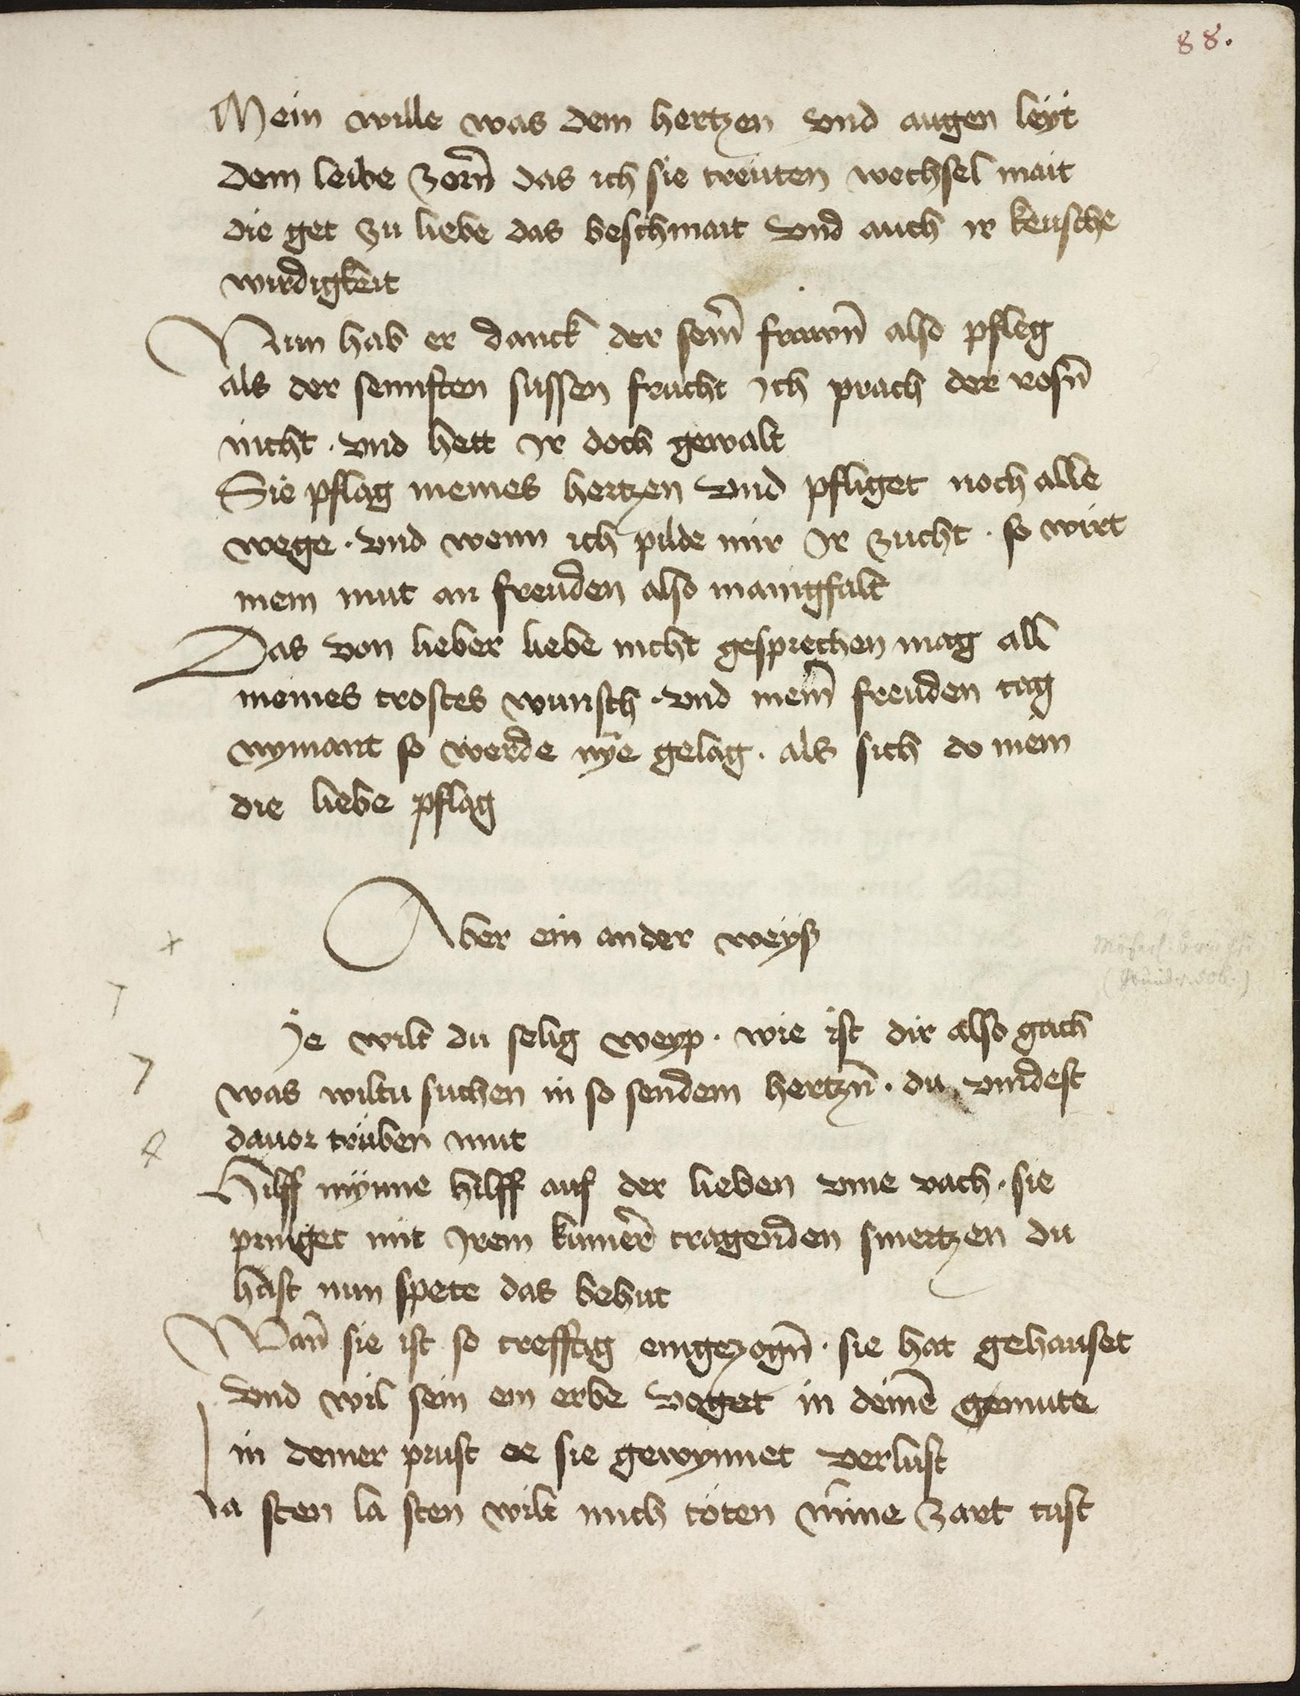 88.
Mein wille was dem hertzen vnd augen leyt
dem leibe zorn̄ das ich sie treuten wechsel mait
die get zu liebe das beschmait vnd auch ir keusche
wirdigkeit
Nun hab er danck der sein̄ frawn̄ also pfleg
als der sennften sussen frucht Ich prach der rosn̄
nicht · vnd hett Ir doch gewalt
Sie pflag meines hertzen vnd pfliget noch alle
wege · vnd wenn ich pilde mir Ir zucht · so wirt
mein mut an freuden also manigfalt
Das von lieber liebe nicht gesprechen mag all
meines trostes wunsch · vnd mein̄ freuden tag
nymant so werde nye gelag · als sich do mein
die liebe pflag
Aber ein ander weyß
Je wilt du selig weyp · wie ist dir also gach
was wiltu suchen in so sendem hertzn̄ · du vindest
dauor trüben mut
Hilff mynne hilff auf der lieben vnie vach · sie
pringet mit Irem kumer̄ tragenden smertzen du
hast nun spete das behut
Wan̄ sie ist so trefftig eingezogn̄ · sie hat gehauset
vnd wil sein ein erbe voget in deinē gemute
in deiner prust ee sie gewynnet verlust
la sten la sten wilt mich töten m̄ine zart tust